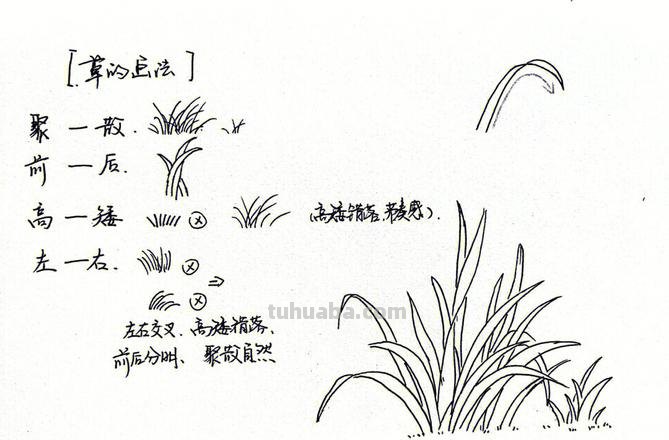 [草的画法]
聚 一 散.
前 一 后.
高 一 矮 ⓧ 高矮错落,节奏感).
左 一 右. ⓧ
⇒
ⓧ
tuhuaba.com
左右交叉、高矮错落、
前后分明、聚散自然